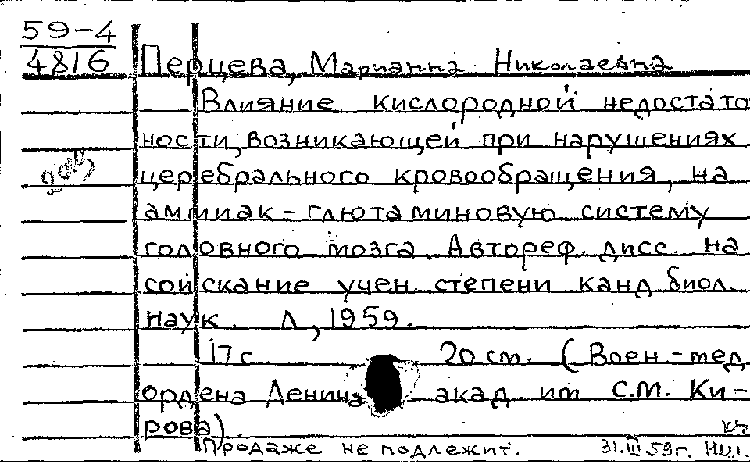 59-4
4816
Перцева, Марианна Николаевна
Влияние кислородной недостато
ности, возникающей при нарушениях
церебрального кровообращения, на
аммиак-глютаминовую систему
головного мозга. Автореф. дисс. на
соискание учен. степени канд. биол.
наук. Л., 1959.
17 с. 20 см. (Воен.-мед.
ордена Ленина акад. им. С.М. Ки-
рова)
Продаже не подлежит. 31.III.59г.